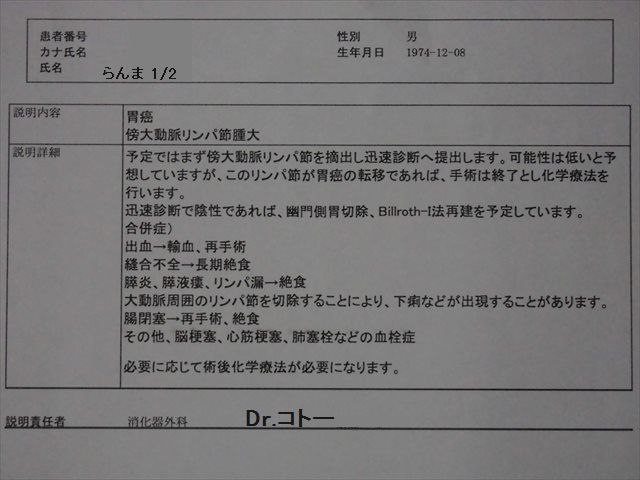 患者番号
性別 男
カナ氏名
生年月日 1974-12-08
氏名 らんま 1/2
説明内容
胃癌
傍大動脈リンパ節腫大
説明詳細
予定ではまず傍大動脈リンパ節を摘出し迅速診断へ提出します。可能性は低いと予
想していますが、このリンパ節が胃癌の転移であれば、手術は終了とし化学療法を
行います。
迅速診断で陰性であれば、幽門側胃切除、Billroth-I法再建を予定しています。
合併症）
出血→輸血、再手術
縫合不全→長期絶食
膵炎、膵液瘻、リンパ漏→絶食
大動脈周囲のリンパ節を切除することにより、下痢などが出現することがあります。
腸閉塞→再手術、絶食
その他、脳梗塞、心筋梗塞、肺塞栓などの血栓症
必要に応じて術後化学療法が必要になります。
説明責任者 消化器外科 Dr.コトー